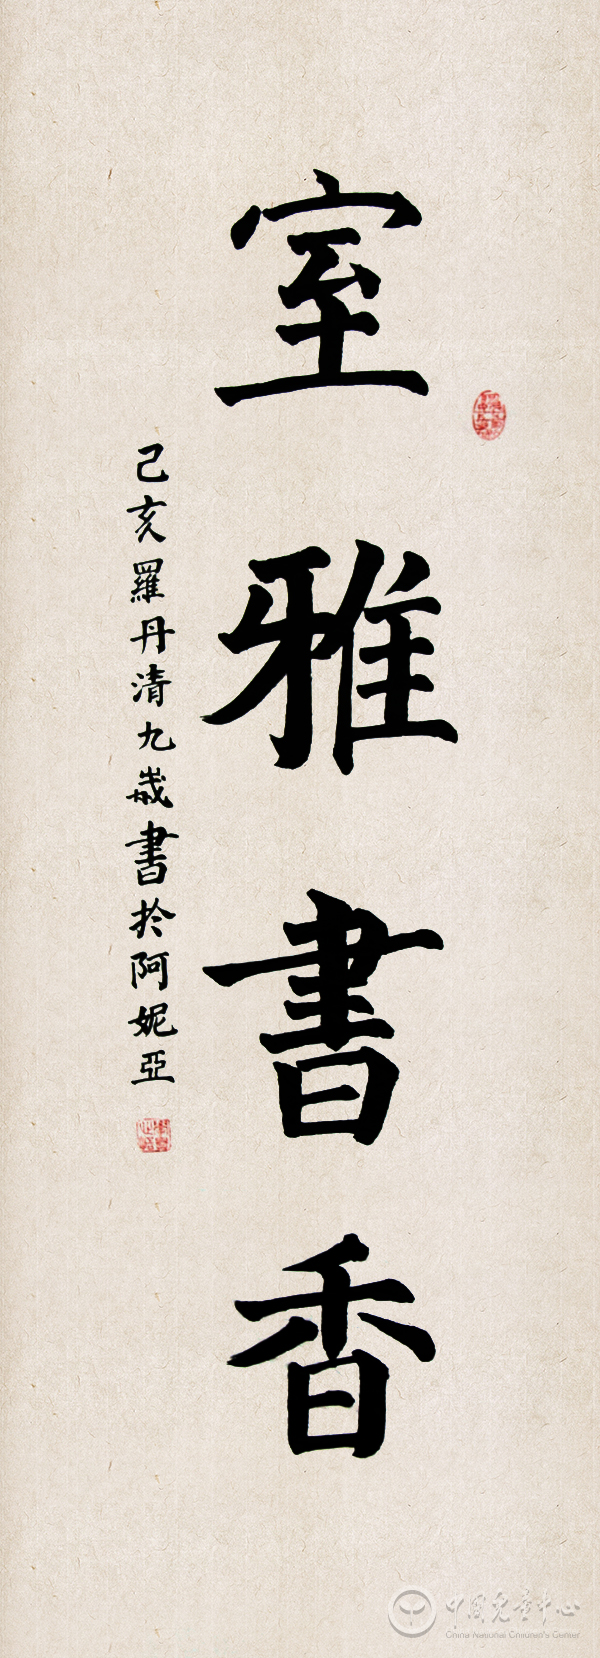 室雅書香
己亥羅丹清九歲書於阿妮亞
中国儿童中心
China National Children's Center